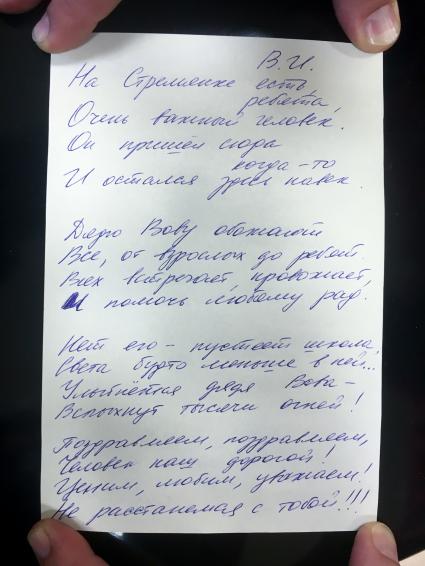 В.И.
На Стремянке есть, ребята,
Очень важный человек.
Он пришёл сюда когда-то
И остался здесь навек.
Дядю Вову обожают
Все, от взрослых до ребят.
Всех встречает, провожает,
И помочь любому рад.
Нет его - пустеет школа,
Света будто меньше в ней...
Улыбнётся дядя Вова -
Вспыхнут тысячи огней!
Поздравляем, поздравляем,
Человек наш дорогой!
Ценим, любим, уважаем!
Не расстанемся с тобой!!!